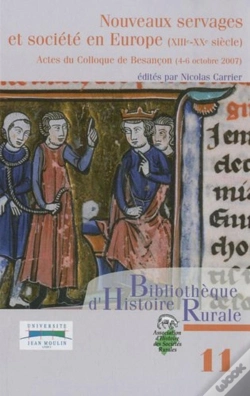 Nouveaux servages
et société en Europe (XIIIe-XXe siècle)
Actes du Colloque de Besançon (4-6 octobre 2007)
édités par Nicolas Carrier
Bibliothèque
d'Histoire
Rurale
UNIVERSITÉ
JEAN MOULIN
Association
d'Histoire
des Sociétés
Rurales
11
wook